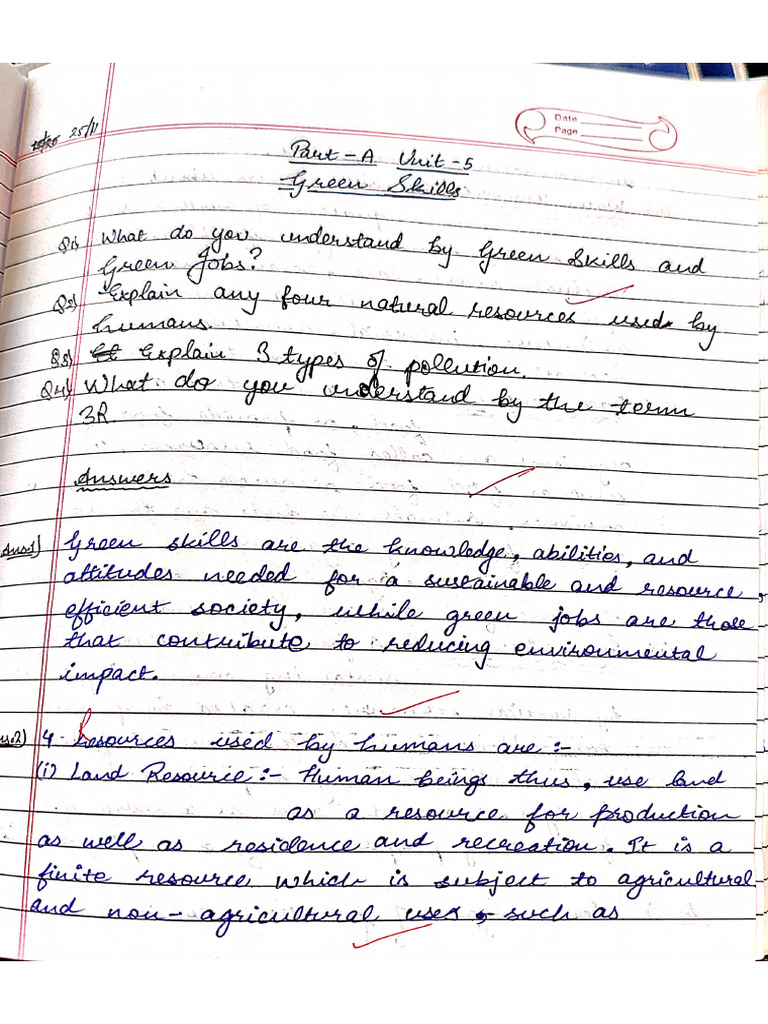 25/11
Date
Page
Part-A Unit-5
Green Skills
Q1) What do you understand by Green Skills and
Green Jobs?
Q2) Explain any four natural resources used by
humans.
Q3) Explain 3 types of pollution.
Q4) What do you understand by the term
3R.
Answers
Ans.1) Green skills are the knowledge, abilities, and
attitudes needed for a sustainable and resource,
efficient society, while green jobs are those
that contribute to reducing environmental
impact.
ns.2) 4 Resources used by humans are :-
(i) Land Resource :- Human beings thus, use land
as a resource for production
as well as residence and recreation. It is a
finite resource which is subject to agricultural
and non-agricultural uses, such as